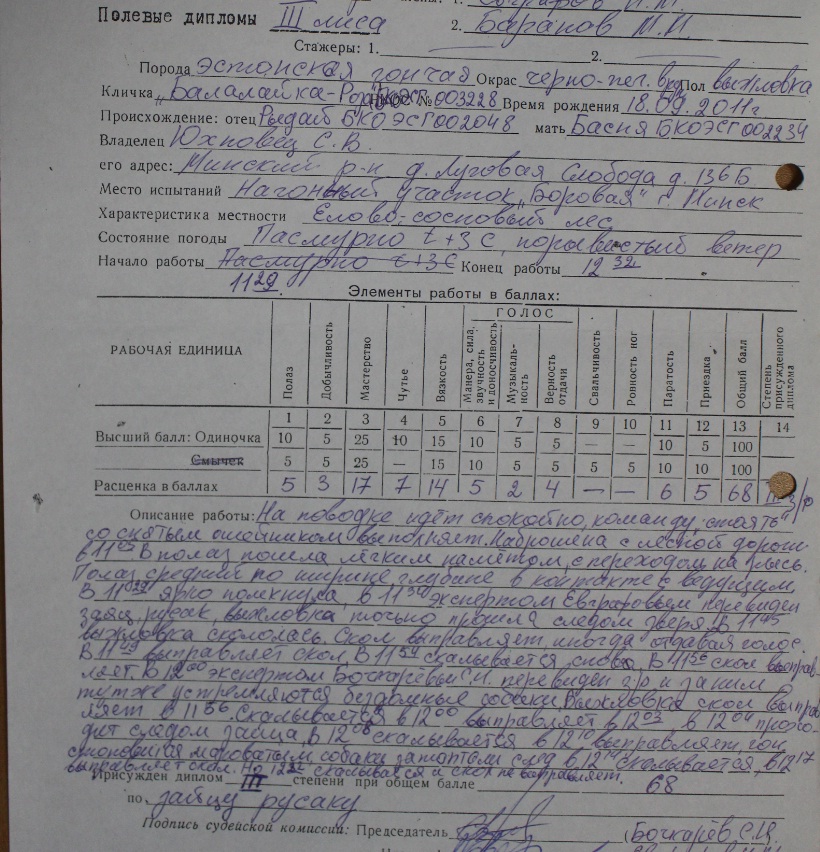 Полевые дипломы III лиса 2. Баранов М.И.
Стажеры: 1. 2.
Порода Эстонская гончая Окрас черно-пег. Пол выжловка
Кличка „Балалайка- № 003228 Время рождения 18.09.2011г
Происхождение: отец Рыдай БКОЭСГ002048 мать Басня БКОЭСГ002234
Владелец Юхновец С.В.
его адрес: Минский р-н д. Луговая Слобода д. 136Б
Место испытаний Нагонный участок „Боровая" г. Минск
Характеристика местности Елово-сосновый лес
Состояние погоды Пасмурно t+3С, порывистый ветер
Начало работы Пасмурно t+3С Конец работы 12 32
11 29.
Элементы работы в баллах:
РАБОЧАЯ ЕДИНИЦА Полаз Добычливость Мастерство Чутье Вязкость ГОЛОС Манера, сила, звучность и доносчивость Музыкальность Верность отдачи Свальчивость Ровность ног Паратость Приездка Общий балл Степень присужденного диплома
1 2 3 4 5 6 7 8 9 10 11 12 13 14
Высший балл: Одиночка 10 5 25 10 15 10 5 5 — — 10 5 100
Смычек 5 5 25 — 15 10 5 5 5 5 10 10 100
Расценка в баллах 5 3 17 7 14 5 2 4 — — 6 5 68 III з/р
Описание работы: На поводке идёт спокойно, команду „стоять"
со снятым ошейником выполняет. Наброшена с лесной дороги
в 11 В полаз пошла лёгким намётом, с переходом на рысь.
Полаз средний по ширине глубине в контакте с ведущим,
В 11 ярко помкнула, в 11 экспертом перевиден
заяц русак, выжловка точно прошла следом зверя. В 11 45
выжловка скололась. Скол выправляет, иногда отдавая голос.
В 11 49 выправляет скол. В 11 54 скалывается снова, В 11 56 скол выправ-
ляет. В 12 00 экспертом Бочкарёвым С.И. перевиден з/р и за ним
тут же устремляются бездомные собаки. Выжловка скол выправ
ляет в 11 56. Скалывается в 12 00 выправляет в 12 03, в 12 04 прохо-
дит следом зайца, В 12 08 скалывается в 12 10 выправляет, гон
собаки затоптали след в 12 14 скалывается, в 12 17
выправляет скол. скалывается и скол не выправляет.
Присужден диплом III степени при общем балле 68
по зайцу русаку
Подпись судейской комиссии: Председатель (Бочкарёв С.И.